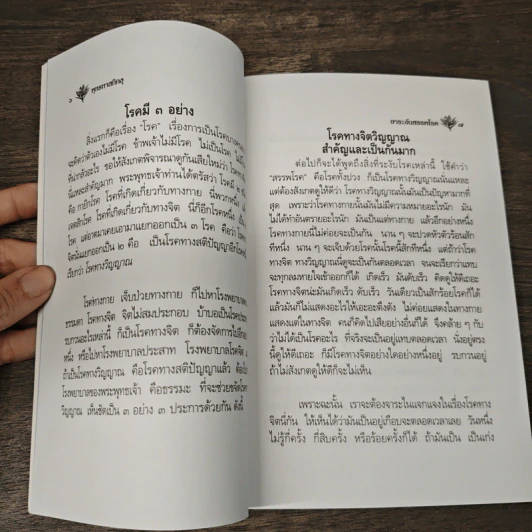 ๖ พุทธทาสภิกขุ
โรคมี ๓ อย่าง
สิ่งแรกก็คือเรื่อง "โรค" เรื่องการเป็นโรค
จะคิดว่าตัวเองไม่มีโรค ข้าพเจ้าไม่มีโรค ไม่เป็นโรค
ที่น่ากลัวอะไร ขอให้สังเกตพิจารณาดูกันเสียใหม่ว่า
นี่แหละสำคัญมาก พระพุทธเจ้าท่านได้ตรัสว่า โรคมี
คือ กายิกโรค โรคที่เกี่ยวกับทางกาย
เจตสิกโรค โรคที่เกิดเกี่ยวกับทางจิต นี่ก็อีกโรคหนึ่ง
โรค แต่อาตมาเคยเอามาแยกออกเป็น ๓ โรค คือว่า
จิตนั้นแยกออกเป็น ๒ คือ เป็นโรคทางสติปัญญาอีก
เรียกว่า โรคทางวิญญาณ
โรคทางกาย เจ็บป่วยทางกาย ก็ไปหาโรงพยาบาล
ธรรมดา โรคทางจิต จิตไม่สมประกอบ บ้าบออะไร
รบกวนอะไรเหล่านี้ ก็เป็นโรคทางจิต ก็ต้องจัดการไปอีก
หนึ่ง หรือไปหาโรงพยาบาลประสาท โรงพยาบาลโรคจิต
ถ้าเป็นโรคทางวิญญาณ คือโรคทางสติปัญญาแล้ว ต้อง
โรงพยาบาลของพระพุทธเจ้า คือธรรมะ ที่จะช่วยขจัดโรคทาง
วิญญาณ เห็นชัดเป็น ๓ อย่าง ๓ ประการด้วยกัน ดังนี้
ธาระอันสรรคโรค ๗
โรคทางจิตวิญญาณ
สำคัญและเป็นกันมาก
ต่อไปก็จะได้พูดถึงสิ่งที่ระงับโรคเหล่านี้ ใช้คำว่า
"สรรพโรค" คือโรคทั้งปวง ก็เป็นโรคทางวิญญาณนั่นแหละ
แต่ต้องสังเกตดูให้ดีว่า โรคทางวิญญาณนั้นมันเป็นปัญหามากที่
สุด เพราะว่าโรคทางกายนั้นมันไม่มีความหมายอะไรนัก มัน
ไม่ได้ทำอันตรายอะไรนัก มันเป็นแต่ทางกาย แล้วอีกอย่างหนึ่ง
โรคทางกายนี่ไม่ค่อยจะเป็นกัน นาน ๆ จะปวดหัวตัวร้อนสัก
ทีหนึ่ง นาน ๆ จะเจ็บด้วยโรคนั้นโรคนี้สักทีหนึ่ง แต่ถ้าว่าโรค
ทางจิต ทางวิญญาณนี่ดูจะเป็นกันตลอดเวลา จนจะเรียกว่าแทบ
จะทุกลมหายใจเข้าออกก็ได้ เกิดเร็ว มันดับเร็ว คิดดูให้ดีเถอะ
โรคทางจิตน่ะมันเกิดเร็ว ดับเร็ว วันเดียวเป็นสักร้อยโรคก็ได้
แล้วมันก็ไม่แสดงอะไรให้เอะอะตึงตัง ไม่ค่อยแสดงในทางกาย
แสดงแต่ในทางจิต คนก็คิดไปเสียอย่างอื่นก็ได้ จึงคล้าย ๆ กับ
ว่าไม่ได้เป็นโรคอะไร ที่จริงจะเป็นอยู่แทบตลอดเวลา นั่งอยู่ตรง
นี่ดูให้ดีเถอะ ก็มีโรคทางจิตอย่างใดอย่างหนึ่งอยู่ รบกวนอยู่
ถ้าไม่สังเกตดูให้ดีก็จะไม่เห็น
เพราะฉะนั้น เราจะต้องจาระไนแจกแจงในเรื่องโรคทาง
จิตนี่กัน ให้เห็นได้ว่ามันเป็นอยู่เกือบจะตลอดเวลาเลย วันหนึ่ง
ไม่รู้กี่ครั้ง กี่สิบครั้ง หรือร้อยครั้งก็ได้ ถ้ามันเป็น เป็นเก่ง